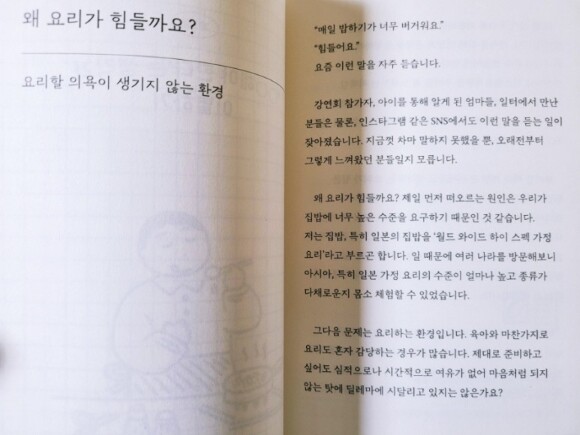 왜 요리가 힘들까요?
요리할 의욕이 생기지 않는 환경
“매일 밥하기가 너무 버거워요.”
“힘들어요.”
요즘 이런 말을 자주 듣습니다.
강연회 참가자, 아이를 통해 알게 된 엄마들, 일터에서 만난
분들은 물론, 인스타그램 같은 SNS에서도 이런 말을 듣는 일이
잦아졌습니다. 지금껏 차마 말하지 못했을 뿐, 오래전부터
그렇게 느껴왔던 분들일지 모릅니다.
왜 요리가 힘들까요? 제일 먼저 떠오르는 원인은 우리가
집밥에 너무 높은 수준을 요구하기 때문인 것 같습니다.
저는 집밥, 특히 일본의 집밥을 ‘월드 와이드 하이 스펙 가정
요리’라고 부르곤 합니다. 일 때문에 여러 나라를 방문해보니
아시아, 특히 일본 가정 요리의 수준이 얼마나 높고 종류가
다채로운지 몸소 체험할 수 있었습니다.
그다음 문제는 요리하는 환경입니다. 육아와 마찬가지로
요리도 혼자 감당하는 경우가 많습니다. 제대로 준비하고
싶어도 심적으로나 시간적으로 여유가 없어 마음처럼 되지
않는 탓에 딜레마에 시달리고 있지는 않은가요?